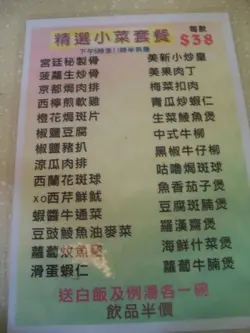 精選小菜套餐
每款
$38
宮廷秘製骨
菠蘿生炒骨
京都焗肉排
西檸煎軟雞
橙花焗斑片
椒鹽豆腐
椒鹽豬扒
涼瓜肉排
西蘭花斑球
xo西芹鮮魷
蝦醬牛通菜
豆豉鯪魚油麥菜
蘿蔔炆魚
滑蛋蝦仁
美新小炒皇
美果肉丁
梅菜扣肉
青瓜炒蝦仁
生菜鯪魚煲
中式牛柳
黑椒牛仔柳
咕嚕焗斑球
魚香茄子煲
豆腐斑腩煲
羅漢齋煲
海鮮什菜煲
蘿蔔牛腩煲
送白飯及例湯各一碗
飲品半價